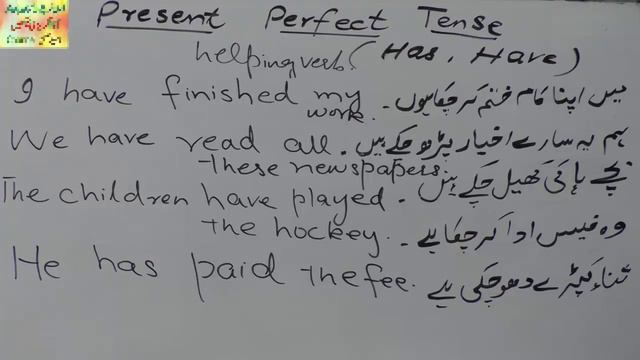 Present Perfect Tense
helping verb. (Has, Have)
I have finished my میں اپنا کام ختم کر چکا ہوں۔
work.
We have read all. ہم یہ سارے اخبار پڑھ چکے ہیں
These newspapers. بچے ہاکی کھیل چکے ہیں
The children have played.
the hockey. وہ فیس ادا کر چکا ہے
He has paid the fee. ثناء کپڑے دھو چکی ہے